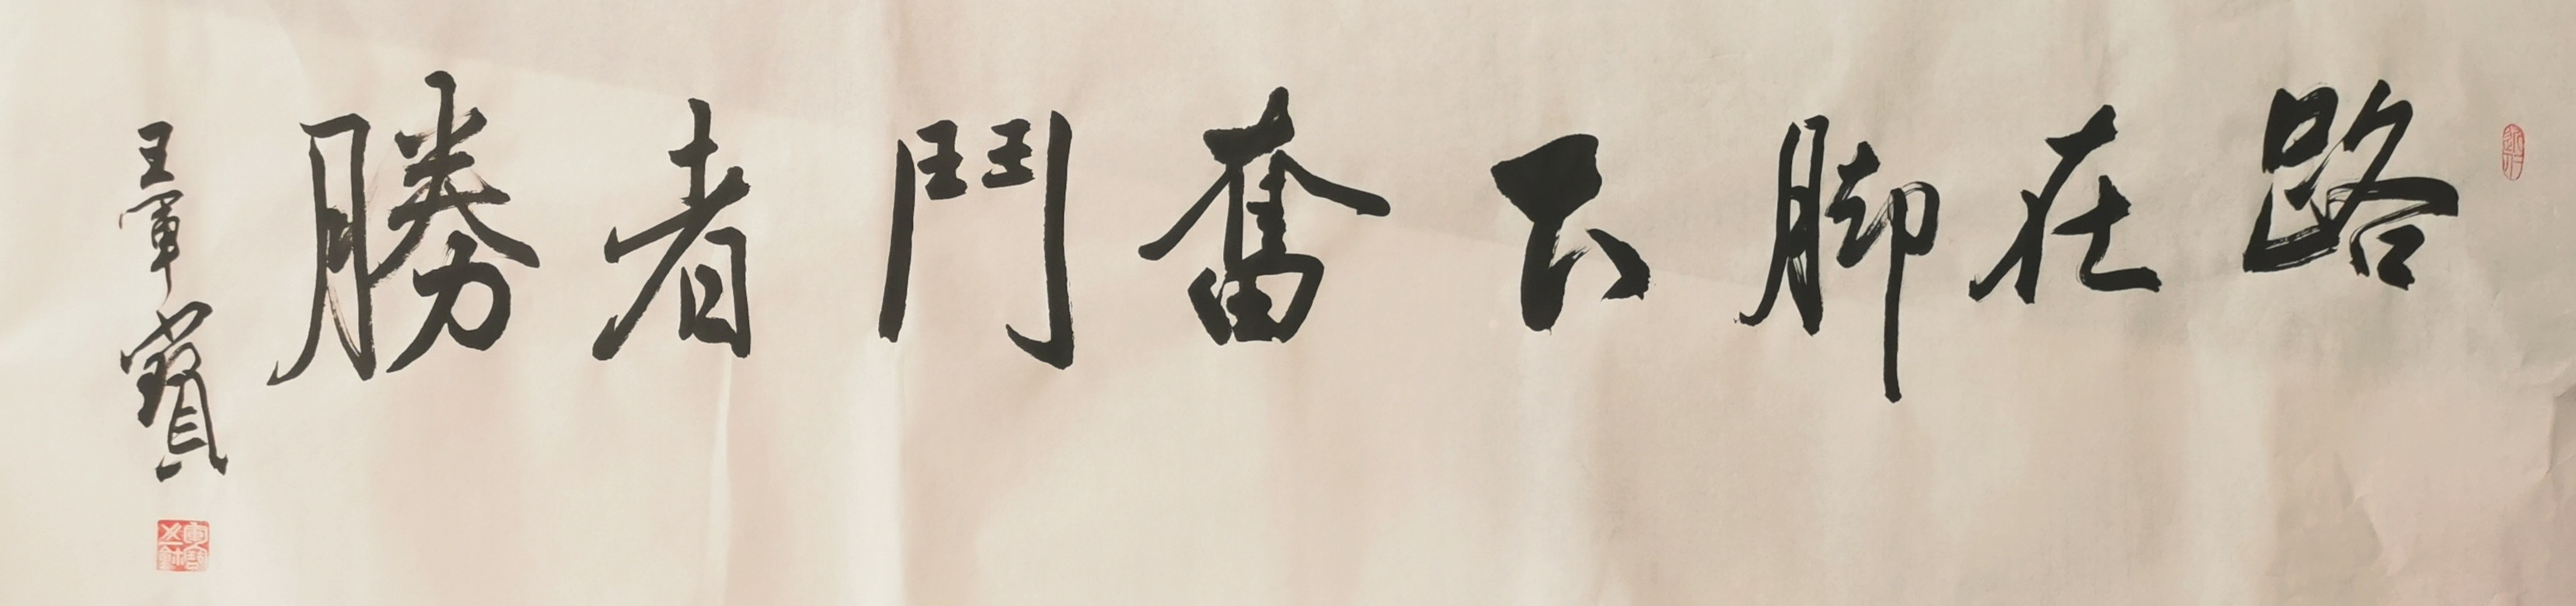 路在脚下奮鬥者勝
王軍寶